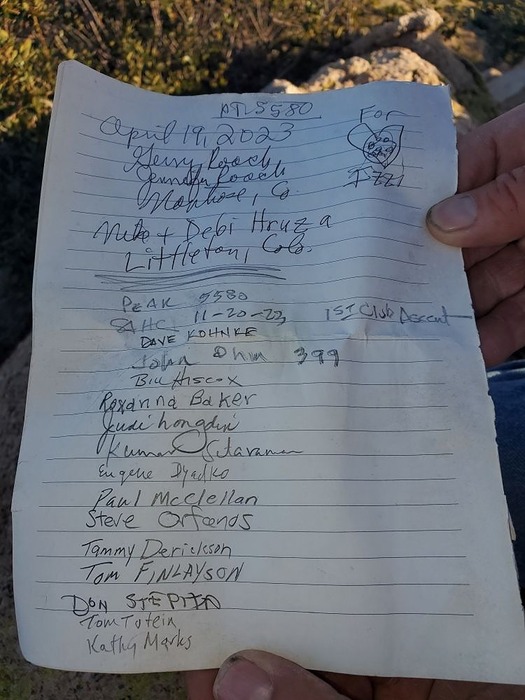 APL 5580
For
April 19, 2023
Gerry Roach
Jennifer Roach
IZZI
Montrose, Co.
Mike + Debi Hruza
Littleton, Colo.
PEAK 5580
SAHC 11-20-23 1ST Club Ascent
DAVE KOHNKE
John Ohm 399
Bill Hiscox
Roxanna Baker
Judi
Kumar Sitaraman
Eugene Dyadko
Paul McClellan
Steve Orfanos
Tammy Derickson
TOM FINLAYSON
DON
Tom Totein
Kathy Marks